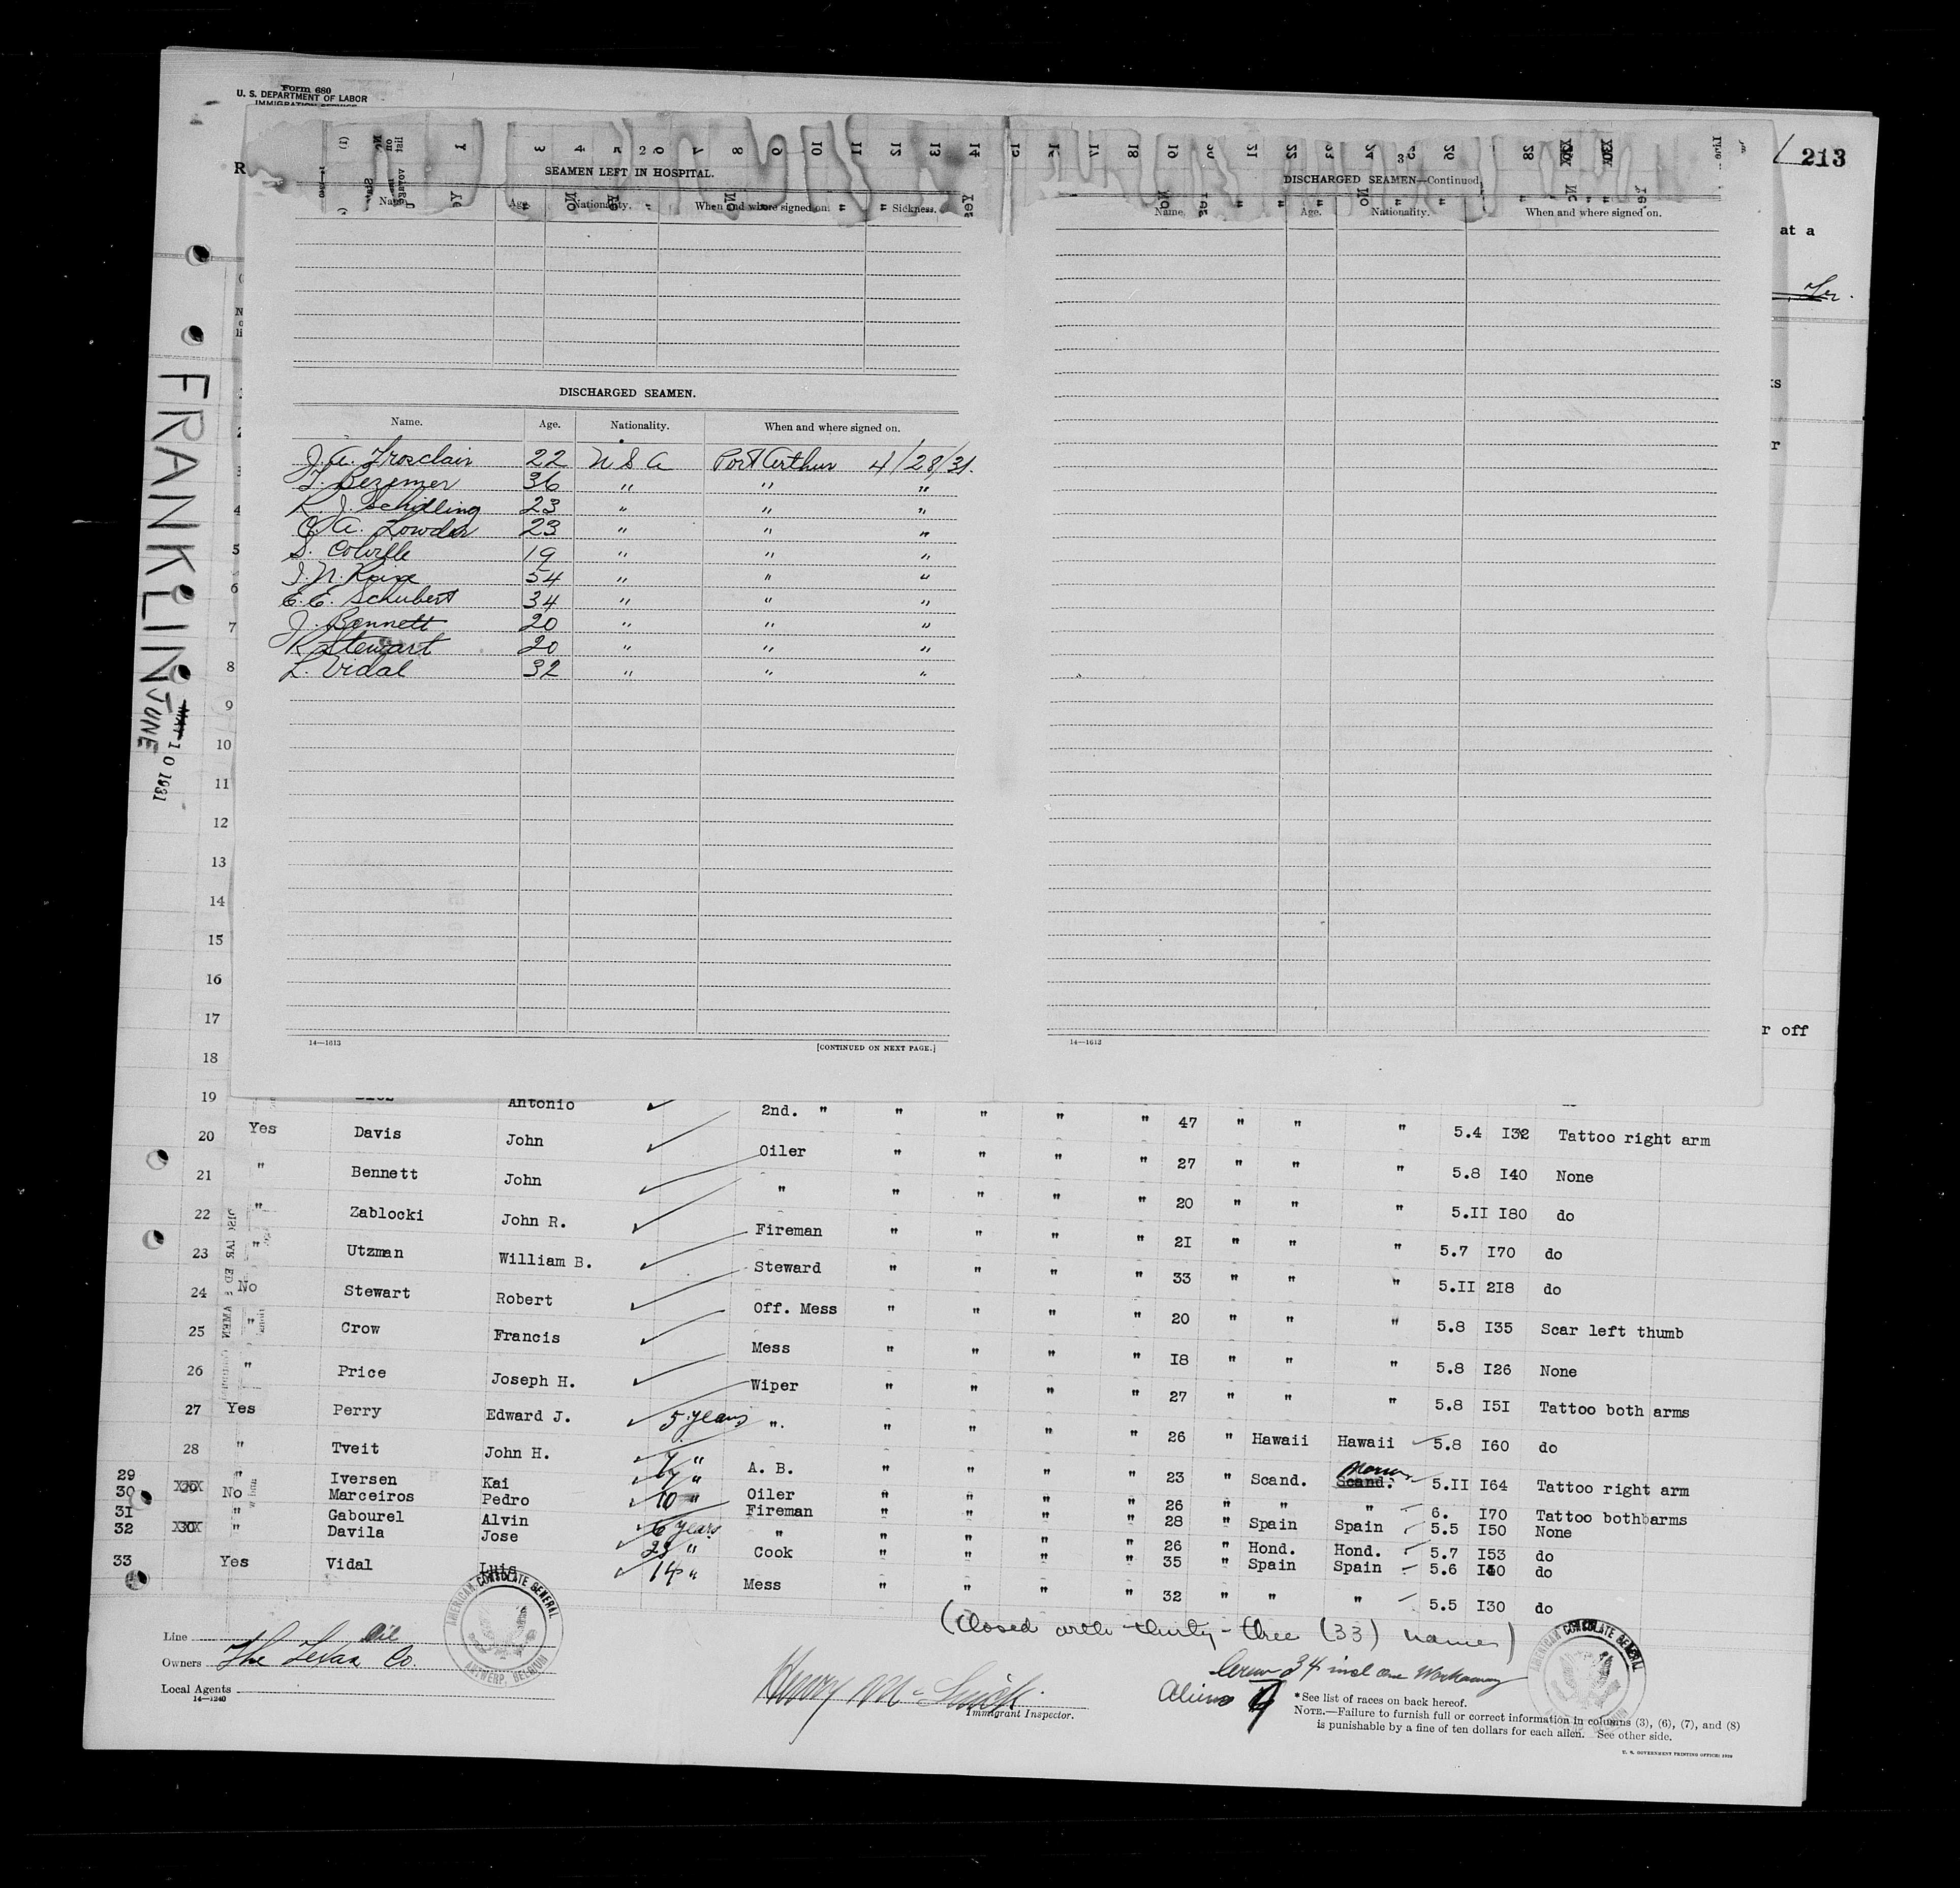 Form 680
U. S. DEPARTMENT OF LABOR
IMMIGRATION SERVICE
213
at a
FRANKLIN
JUNE 10 1931
2
SEAMEN LEFT IN HOSPITAL.
Name. Age. Nationality. When and where signed on. Sickness.
DISCHARGED SEAMEN.
Name. Age. Nationality. When and where signed on.
J. A. Trosclair 22 U S A Port Arthur 4/28/31.
Bezemer 36 " " "
R. J. Schilling 23 " " "
A. Lowder 23 " " "
S. Colville 19 " " "
J. N. 54 " " "
E. E. Schubert 34 " " "
J. Bennett 20 " " "
R Stewart 20 " " "
L. Vidal 32 " " "
14—1613 [CONTINUED ON NEXT PAGE.]
3
DISCHARGED SEAMEN—Continued.
Name. Age. Nationality. When and where signed on.
14—1613
r off
4
5
6
7
8
9
10
11
12
13
14
15
16
17
18
19 Antonio 2nd. " " " " " 47 " " " 5.4 I32 Tattoo right arm
20 Yes Davis John Oiler " " " " 27 " " " 5.8 I40 None
21 " Bennett John " " " " " 20 " " " 5.II I80 do
22 " Zablocki John R. Fireman " " " " 2I " " " 5.7 I70 do
23 " Utzman William B. Steward " " " " 33 " " " 5.II 2I8 do
24 No Stewart Robert Off. Mess " " " " 20 " " " 5.8 I35 Scar left thumb
25 " Crow Francis Mess " " " " I8 " " " 5.8 I26 None
26 " Price Joseph H. Wiper " " " " 27 " " " 5.8 I5I Tattoo both arms
27 Yes Perry Edward J. 5 years ". " " " " 26 " Hawaii Hawaii 5.8 I60 do
28 " Tveit John H. " A. B. " " " " 23 " Scand. Scand. 5.II I64 Tattoo right arm
29 " Iversen Kai " Oiler " " " " 26 " " " 6. I70 Tattoo both arms
30 No Marceiros Pedro 10 " Fireman " " " " 28 " Spain Spain 5.5 I50 None
31 " Gabourel Alvin 6 years " " " " " 26 " Hond. Hond. 5.7 I53 do
32 " Davila Jose " Cook " " " " 35 " Spain Spain 5.6 do
33 Yes Vidal Luis 14 " Mess " " " " 32 " " " 5.5 I30 do
(Closed with thirty-three (33) names)
Line Oil
Owners The Texas Co.
Local Agents
14—1240
AMERICAN CONSULATE GENERAL
ANTWERP, BELGIUM
Immigrant Inspector.
Crew 34 incl one Workaway
Aliens 7
AMERICAN CONSULATE GENERAL
*See list of races on back hereof.
NOTE.—Failure to furnish full or correct information in columns (3), (6), (7), and (8)
is punishable by a fine of ten dollars for each alien. See other side.